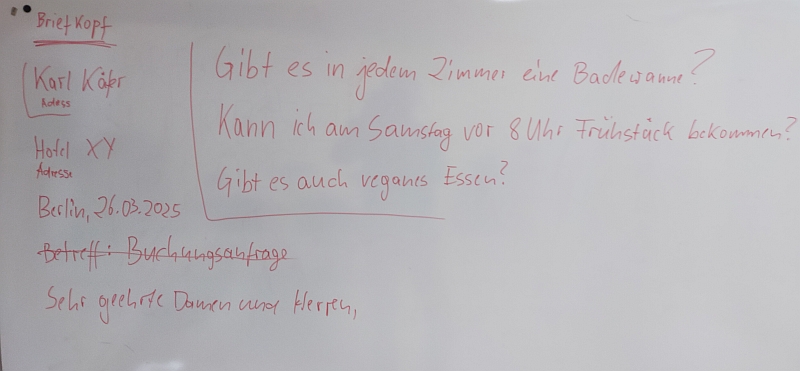 Briefkopf
Karl Käfer
Adess
Hotel XY
Adresse
Berlin, 26.03.2025
Betreff: Buchungsanfrage
Sehr geehrte Damen und Herren,
Gibt es in jedem Zimmer eine Badewanne?
Kann ich am Samstag vor 8 Uhr Frühstück bekommen?
Gibt es auch veganes Essen?